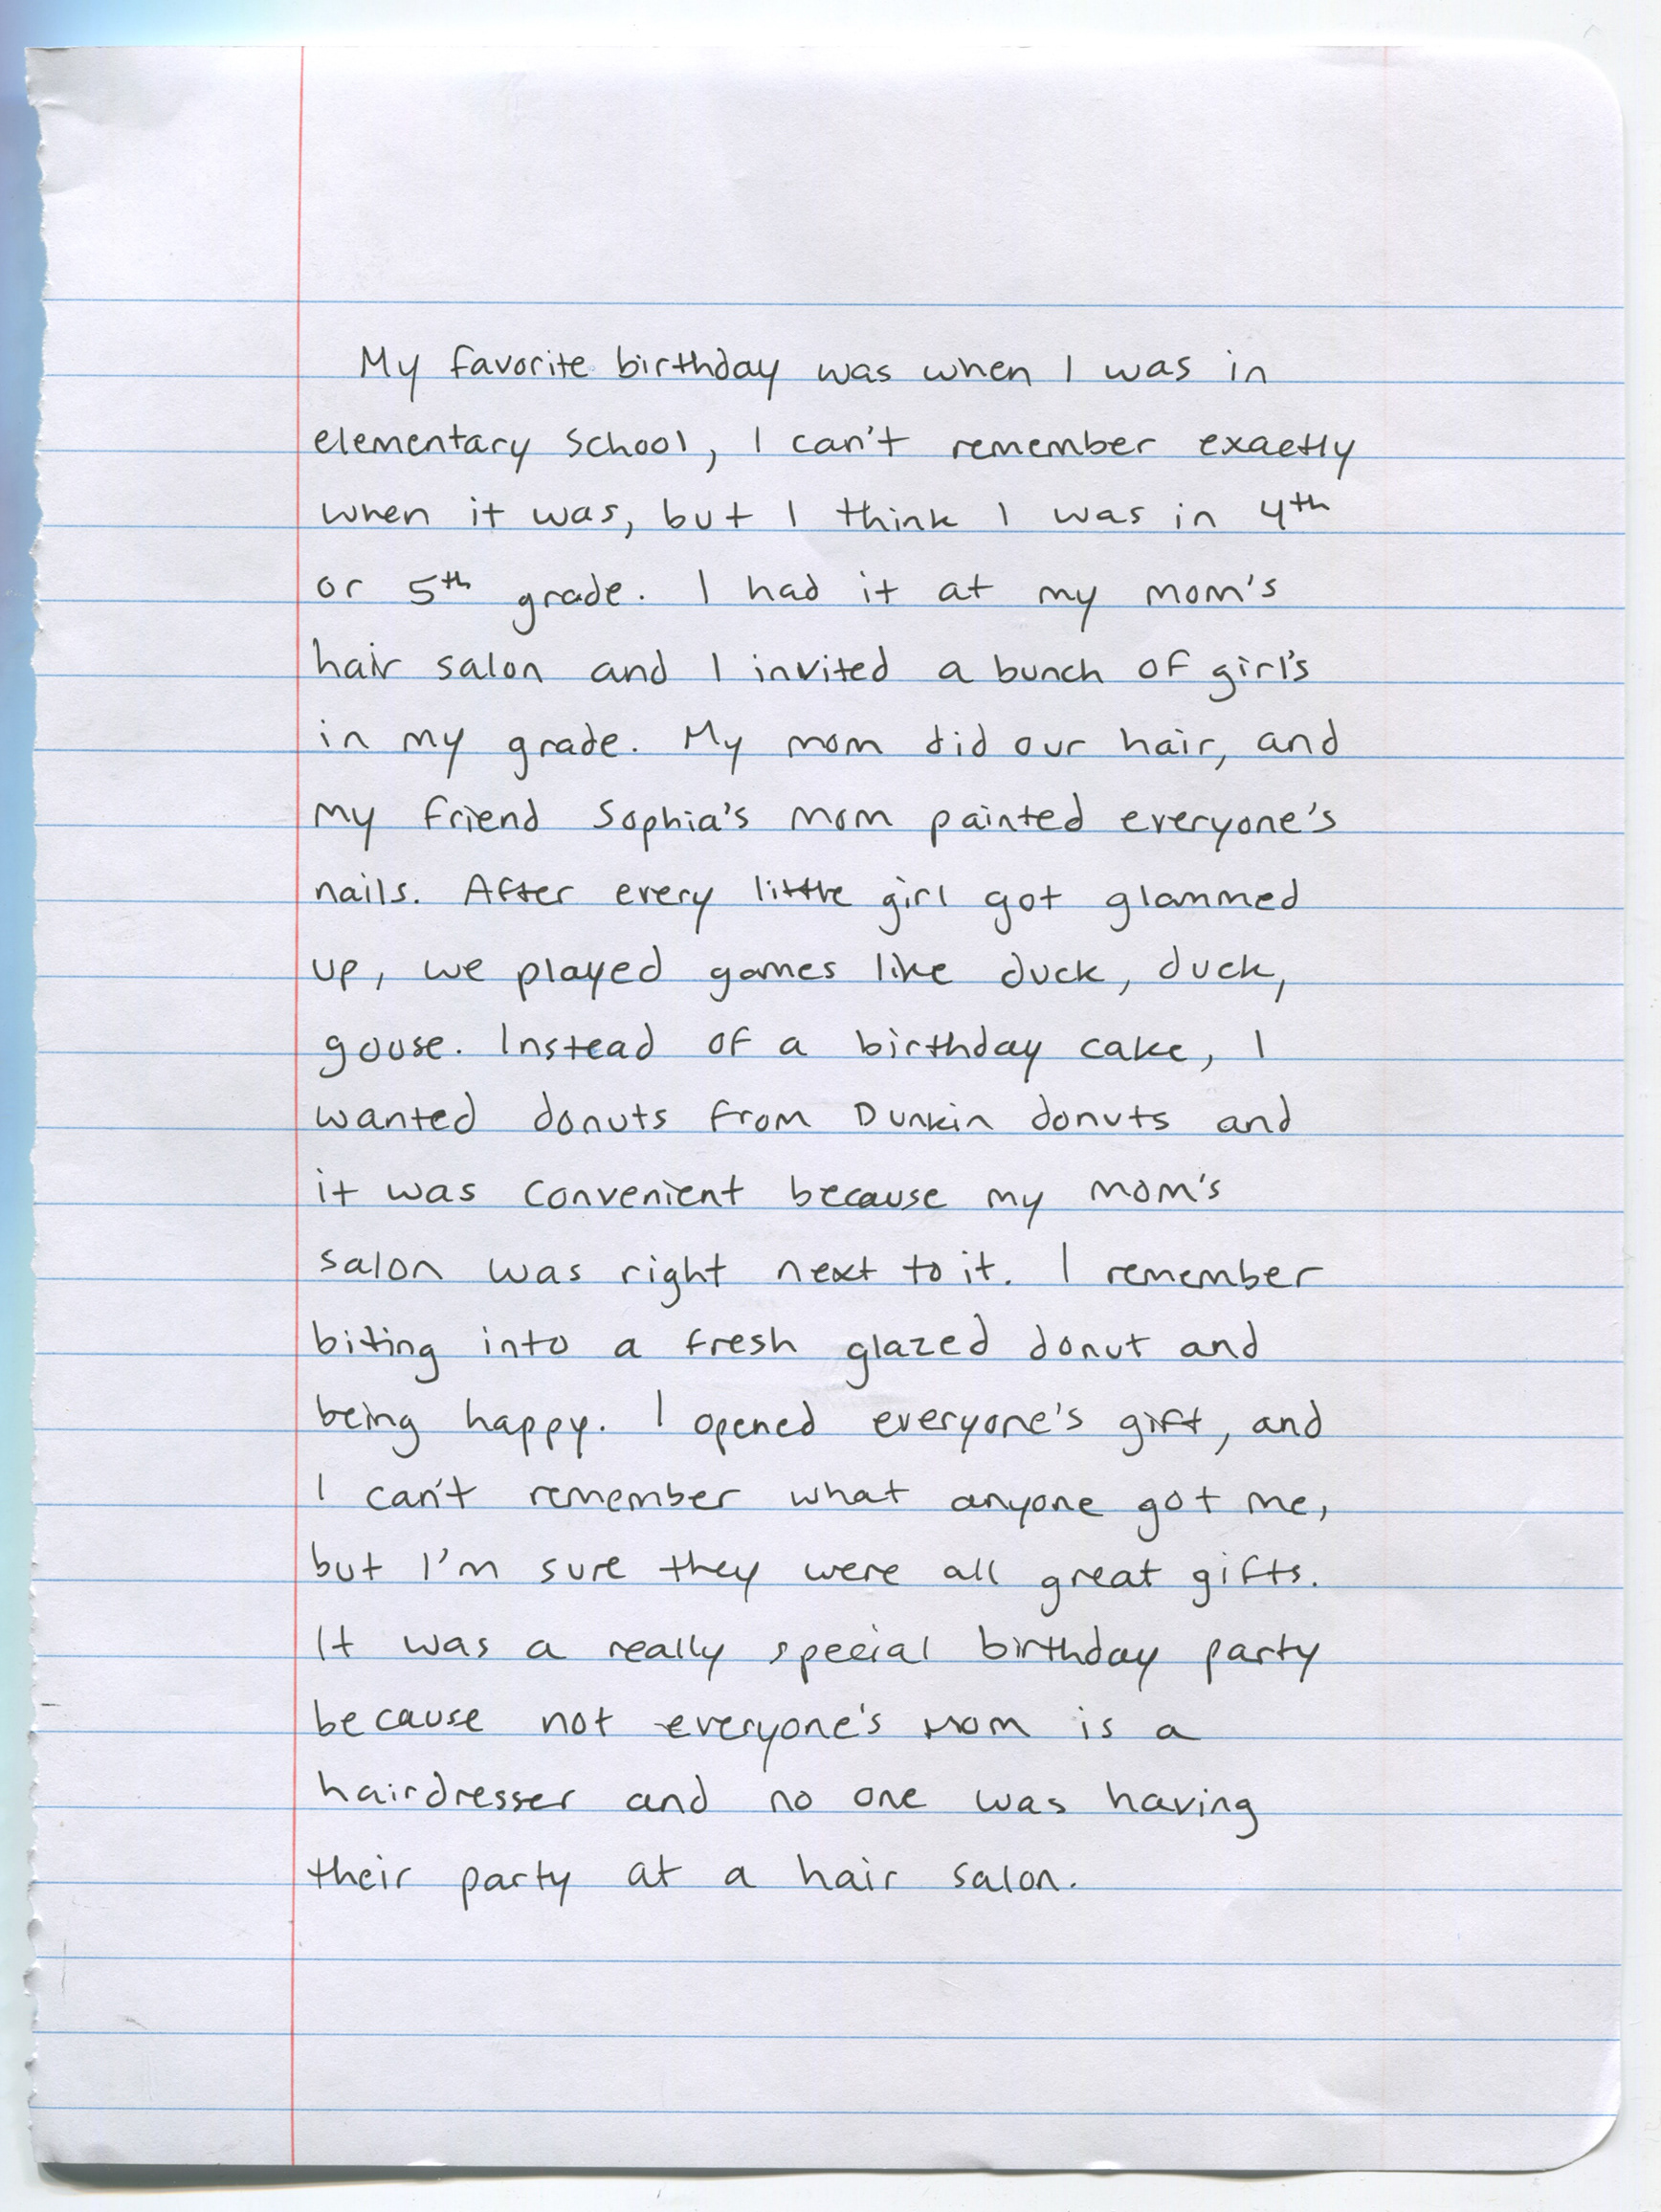 My favorite birthday was when I was in
elementary school, I can't remember exactly
when it was, but I think I was in 4th
or 5th grade. I had it at my mom's
hair salon and I invited a bunch of girl's
in my grade. My mom did our hair, and
my friend Sophia's mom painted everyone's
nails. After every little girl got glammed
up, we played games like duck, duck,
goose. Instead of a birthday cake, I
wanted donuts from Dunkin donuts and
it was convenient because my mom's
salon was right next to it. I remember
biting into a fresh glazed donut and
being happy. I opened everyone's gift, and
I can't remember what anyone got me,
but I'm sure they were all great gifts.
It was a really special birthday party
because not everyone's mom is a
hairdresser and no one was having
their party at a hair salon.